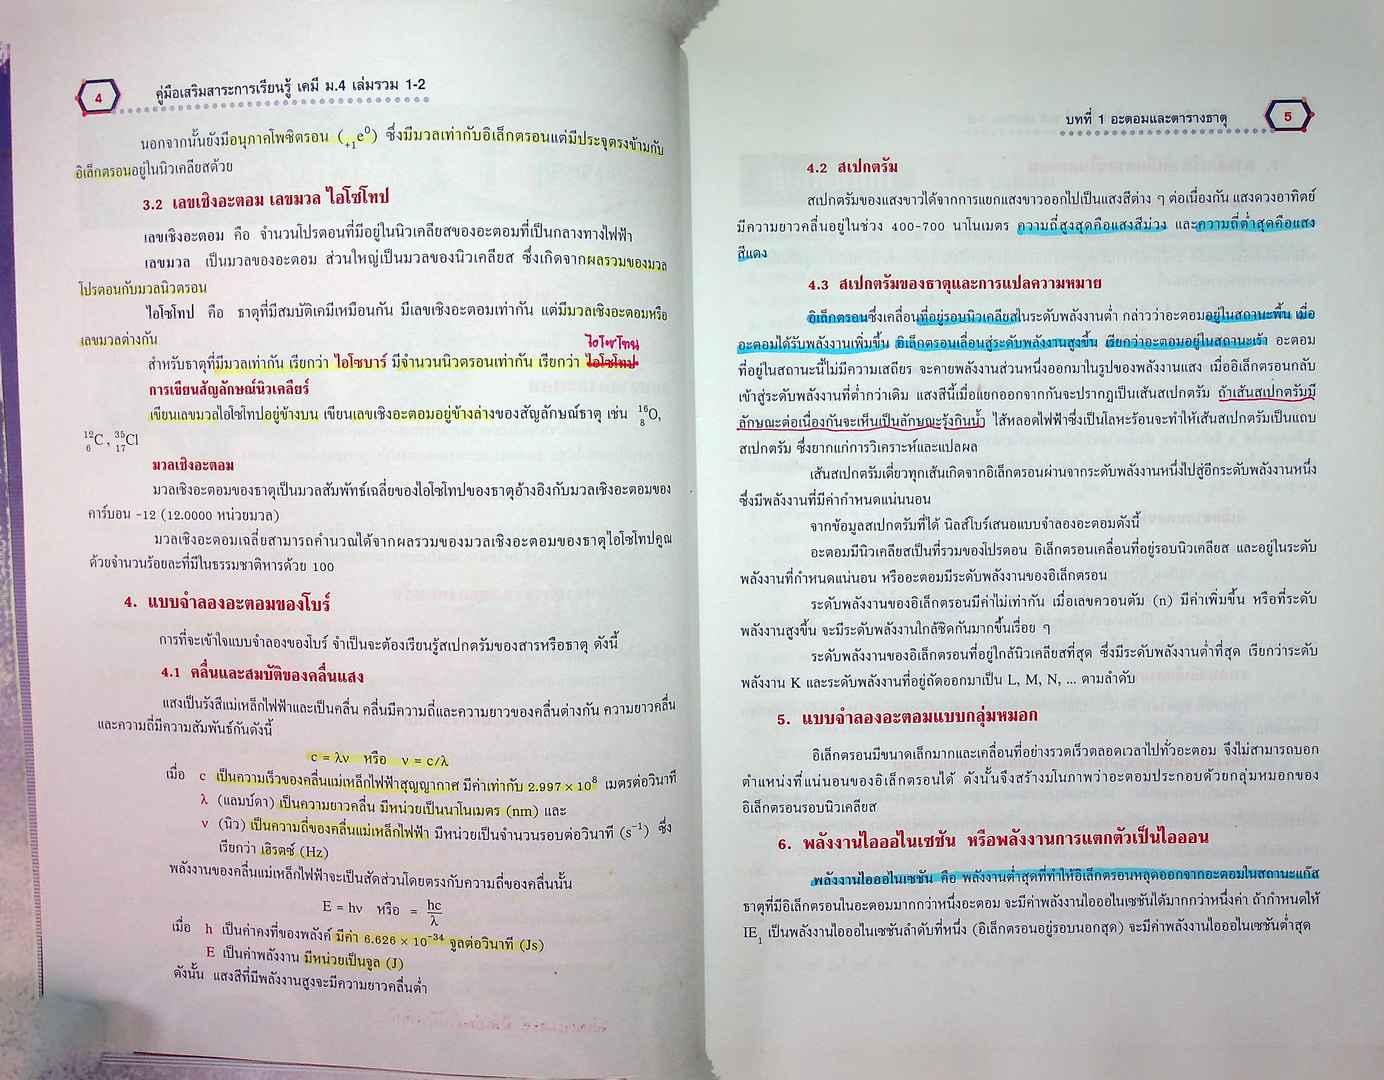 4
คู่มือเสริมสาระการเรียนรู้ เคมี ม.4 เล่มรวม 1-2
นอกจากนั้นยังมีอนุภาคโพซิตรอน (₊₁e⁰) ซึ่งมีมวลเท่ากับอิเล็กตรอนแต่มีประจุตรงข้ามกับ
อิเล็กตรอนอยู่ในนิวเคลียสด้วย
3.2 เลขเชิงอะตอม เลขมวล ไอโซโทป
เลขเชิงอะตอม คือ จำนวนโปรตอนที่มีอยู่ในนิวเคลียสของอะตอมที่เป็นกลางทางไฟฟ้า
เลขมวล เป็นมวลของอะตอม ส่วนใหญ่เป็นมวลของนิวเคลียส ซึ่งเกิดจากผลรวมของมวล
โปรตอนกับมวลนิวตรอน
ไอโซโทป คือ ธาตุที่มีสมบัติเคมีเหมือนกัน มีเลขเชิงอะตอมเท่ากัน แต่มีมวลอะตอมหรือ
เลขมวลต่างกัน
ไอโซโทน
สำหรับธาตุที่มีมวลเท่ากัน เรียกว่า ไอโซบาร์ มีจำนวนนิวตรอนเท่ากัน เรียกว่า ไอโซโทป
การเขียนสัญลักษณ์นิวเคลียร์
เขียนเลขมวลไอโซโทปอยู่ข้างบน เขียนเลขเชิงอะตอมอยู่ข้างล่างของสัญลักษณ์ธาตุ เช่น ¹⁶₈O,
¹²₆C, ³⁵₁₇Cl
มวลเชิงอะตอม
มวลเชิงอะตอมของธาตุเป็นมวลสัมพัทธ์เฉลี่ยของไอโซโทปของธาตุอ้างอิงกับมวลเชิงอะตอมของ
คาร์บอน -12 (12.0000 หน่วยมวล)
มวลเชิงอะตอมเฉลี่ยสามารถคำนวณได้จากผลรวมของมวลเชิงอะตอมของธาตุไอโซโทปคูณ
ด้วยจำนวนร้อยละที่มีในธรรมชาติหารด้วย 100
4. แบบจำลองอะตอมของโบร์
การที่จะเข้าใจแบบจำลองของโบร์ จำเป็นจะต้องเรียนรู้สเปกตรัมของสารหรือธาตุ ดังนี้
4.1 คลื่นและสมบัติของคลื่นแสง
แสงเป็นรังสีแม่เหล็กไฟฟ้าและเป็นคลื่น คลื่นมีความถี่และความยาวของคลื่นต่างกัน ความยาวคลื่น
และความถี่มีความสัมพันธ์กันดังนี้
c = λν หรือ ν = c/λ
เมื่อ c เป็นความเร็วของคลื่นแม่เหล็กไฟฟ้าสุญญากาศ มีค่าเท่ากับ 2.997 × 10⁸ เมตรต่อวินาที
λ (แลมบ์ดา) เป็นความยาวคลื่น มีหน่วยเป็นนาโนเมตร (nm) และ
ν (นิว) เป็นความถี่ของคลื่นแม่เหล็กไฟฟ้า มีหน่วยเป็นจำนวนรอบต่อวินาที (s⁻¹) ซึ่ง
เรียกว่า เฮิรตซ์ (Hz)
พลังงานของคลื่นแม่เหล็กไฟฟ้าจะเป็นสัดส่วนโดยตรงกับความถี่ของคลื่นนั้น
E = hν หรือ = hc/λ
เมื่อ h เป็นค่าคงที่ของพลังค์ มีค่า 6.626 × 10⁻³⁴ จูลต่อวินาที (Js)
E เป็นค่าพลังงาน มีหน่วยเป็นจูล (J)
ดังนั้น แสงสีที่มีพลังงานสูงจะมีความยาวคลื่นต่ำ
บทที่ 1 อะตอมและตารางธาตุ
5
4.2 สเปกตรัม
สเปกตรัมของแสงขาวได้จากการแยกแสงขาวออกไปเป็นแสงสีต่าง ๆ ต่อเนื่องกัน แสงดวงอาทิตย์
มีความยาวคลื่นอยู่ในช่วง 400-700 นาโนเมตร ความถี่สูงสุดคือแสงสีม่วง และความถี่ต่ำสุดคือแสง
สีแดง
4.3 สเปกตรัมของธาตุและการแปลความหมาย
อิเล็กตรอนซึ่งเคลื่อนที่อยู่รอบนิวเคลียสในระดับพลังงานต่ำ กล่าวว่าอะตอมอยู่ในสถานะพื้น เมื่อ
อะตอมได้รับพลังงานเพิ่มขึ้น อิเล็กตรอนเลื่อนสู่ระดับพลังงานสูงขึ้น เรียกว่าอะตอมอยู่ในสถานะเร้า อะตอม
ที่อยู่ในสถานะนี้ไม่มีความเสถียร จะคายพลังงานส่วนหนึ่งออกมาในรูปของพลังงานแสง เมื่ออิเล็กตรอนกลับ
เข้าสู่ระดับพลังงานที่ต่ำกว่าเดิม แสงสีนี้เมื่อแยกออกจากกันจะปรากฏเป็นเส้นสเปกตรัม ถ้าเส้นสเปกตรัมมี
ลักษณะต่อเนื่องกันจะเห็นเป็นลักษณะรุ้งกินน้ำ ไส้หลอดไฟฟ้าซึ่งเป็นโลหะร้อนจะทำให้เส้นสเปกตรัมเป็นแถบ
สเปกตรัม ซึ่งยากแก่การวิเคราะห์และแปลผล
เส้นสเปกตรัมเดี่ยวทุกเส้นเกิดจากอิเล็กตรอนผ่านจากระดับพลังงานหนึ่งไปสู่อีกระดับพลังงานหนึ่ง
ซึ่งมีพลังงานที่มีค่ากำหนดแน่นอน
จากข้อมูลสเปกตรัมที่ได้ นิลส์โบร์เสนอแบบจำลองอะตอมดังนี้
อะตอมมีนิวเคลียสเป็นที่รวมของโปรตอน อิเล็กตรอนเคลื่อนที่อยู่รอบนิวเคลียส และอยู่ในระดับ
พลังงานที่กำหนดแน่นอน หรืออะตอมมีระดับพลังงานของอิเล็กตรอน
ระดับพลังงานของอิเล็กตรอนมีค่าไม่เท่ากัน เมื่อเลขควอนตัม (n) มีค่าเพิ่มขึ้น หรือที่ระดับ
พลังงานสูงขึ้น จะมีระดับพลังงานใกล้ชิดกันมากขึ้นเรื่อย ๆ
ระดับพลังงานของอิเล็กตรอนที่อยู่ใกล้นิวเคลียสที่สุด ซึ่งมีระดับพลังงานต่ำที่สุด เรียกว่าระดับ
พลังงาน K และระดับพลังงานที่อยู่ถัดออกมาเป็น L, M, N, ... ตามลำดับ
5. แบบจำลองอะตอมแบบกลุ่มหมอก
อิเล็กตรอนมีขนาดเล็กมากและเคลื่อนที่อย่างรวดเร็วตลอดเวลาไปทั่วอะตอม จึงไม่สามารถบอก
ตำแหน่งที่แน่นอนของอิเล็กตรอนได้ ดังนั้นจึงสร้างมโนภาพว่าอะตอมประกอบด้วยกลุ่มหมอกของ
อิเล็กตรอนรอบนิวเคลียส
6. พลังงานไอออไนเซชัน หรือพลังงานการแตกตัวเป็นไอออน
พลังงานไอออไนเซชัน คือ พลังงานต่ำสุดที่ทำให้อิเล็กตรอนหลุดออกจากอะตอมในสถานะแก๊ส
ธาตุที่มีอิเล็กตรอนในอะตอมมากกว่าหนึ่งอะตอม จะมีค่าพลังงานไอออไนเซชันได้มากกว่าหนึ่งค่า ถ้ากำหนดให้
IE₁ เป็นพลังงานไอออไนเซชันลำดับที่หนึ่ง (อิเล็กตรอนอยู่รอบนอกสุด) จะมีค่าพลังงานไอออไนเซชันต่ำสุด